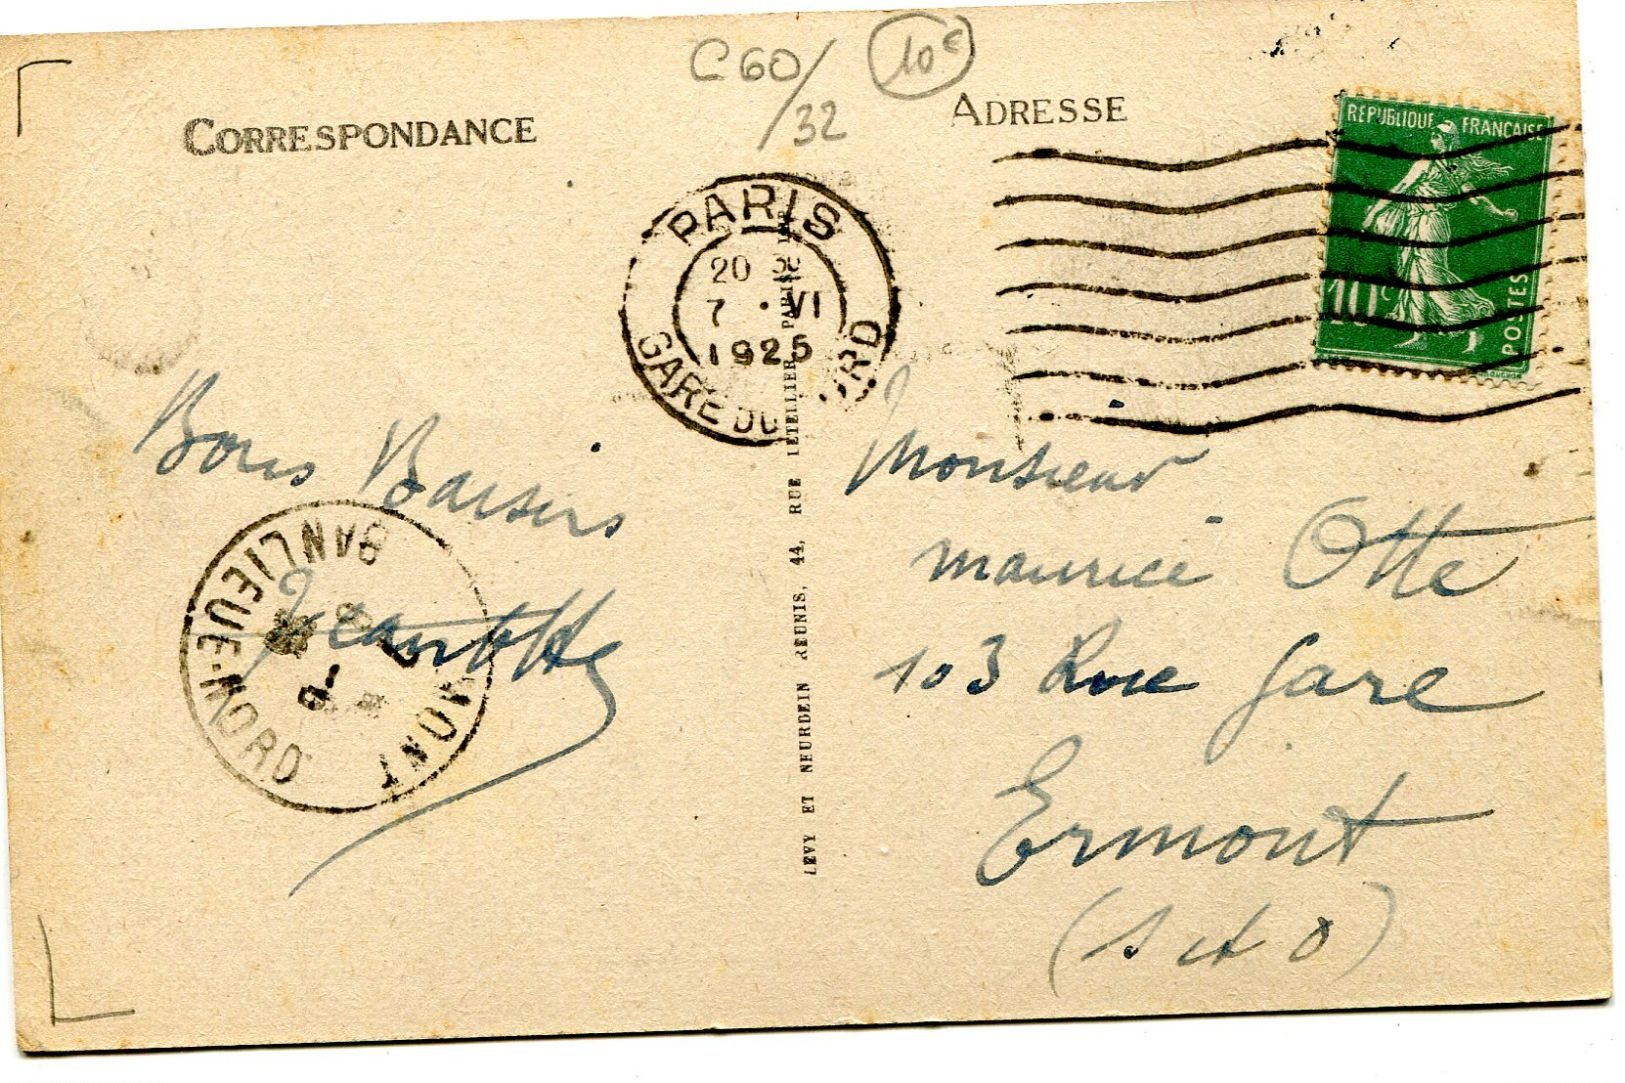 C60/32
10€
CORRESPONDANCE
ADRESSE
REPUBLIQUE FRANÇAISE
10c
POSTES
PARIS
20
7 · VI
1925
GARE DU NORD
Bons Baisers
Jeannette
BANLIEUE-NORD
MONT
LEVY ET NEURDEIN REUNIS, 44, RUE LETELLIER, PARIS
Monsieur
Maurice Otte
103 Rue Gare
Ermont
(S et O)